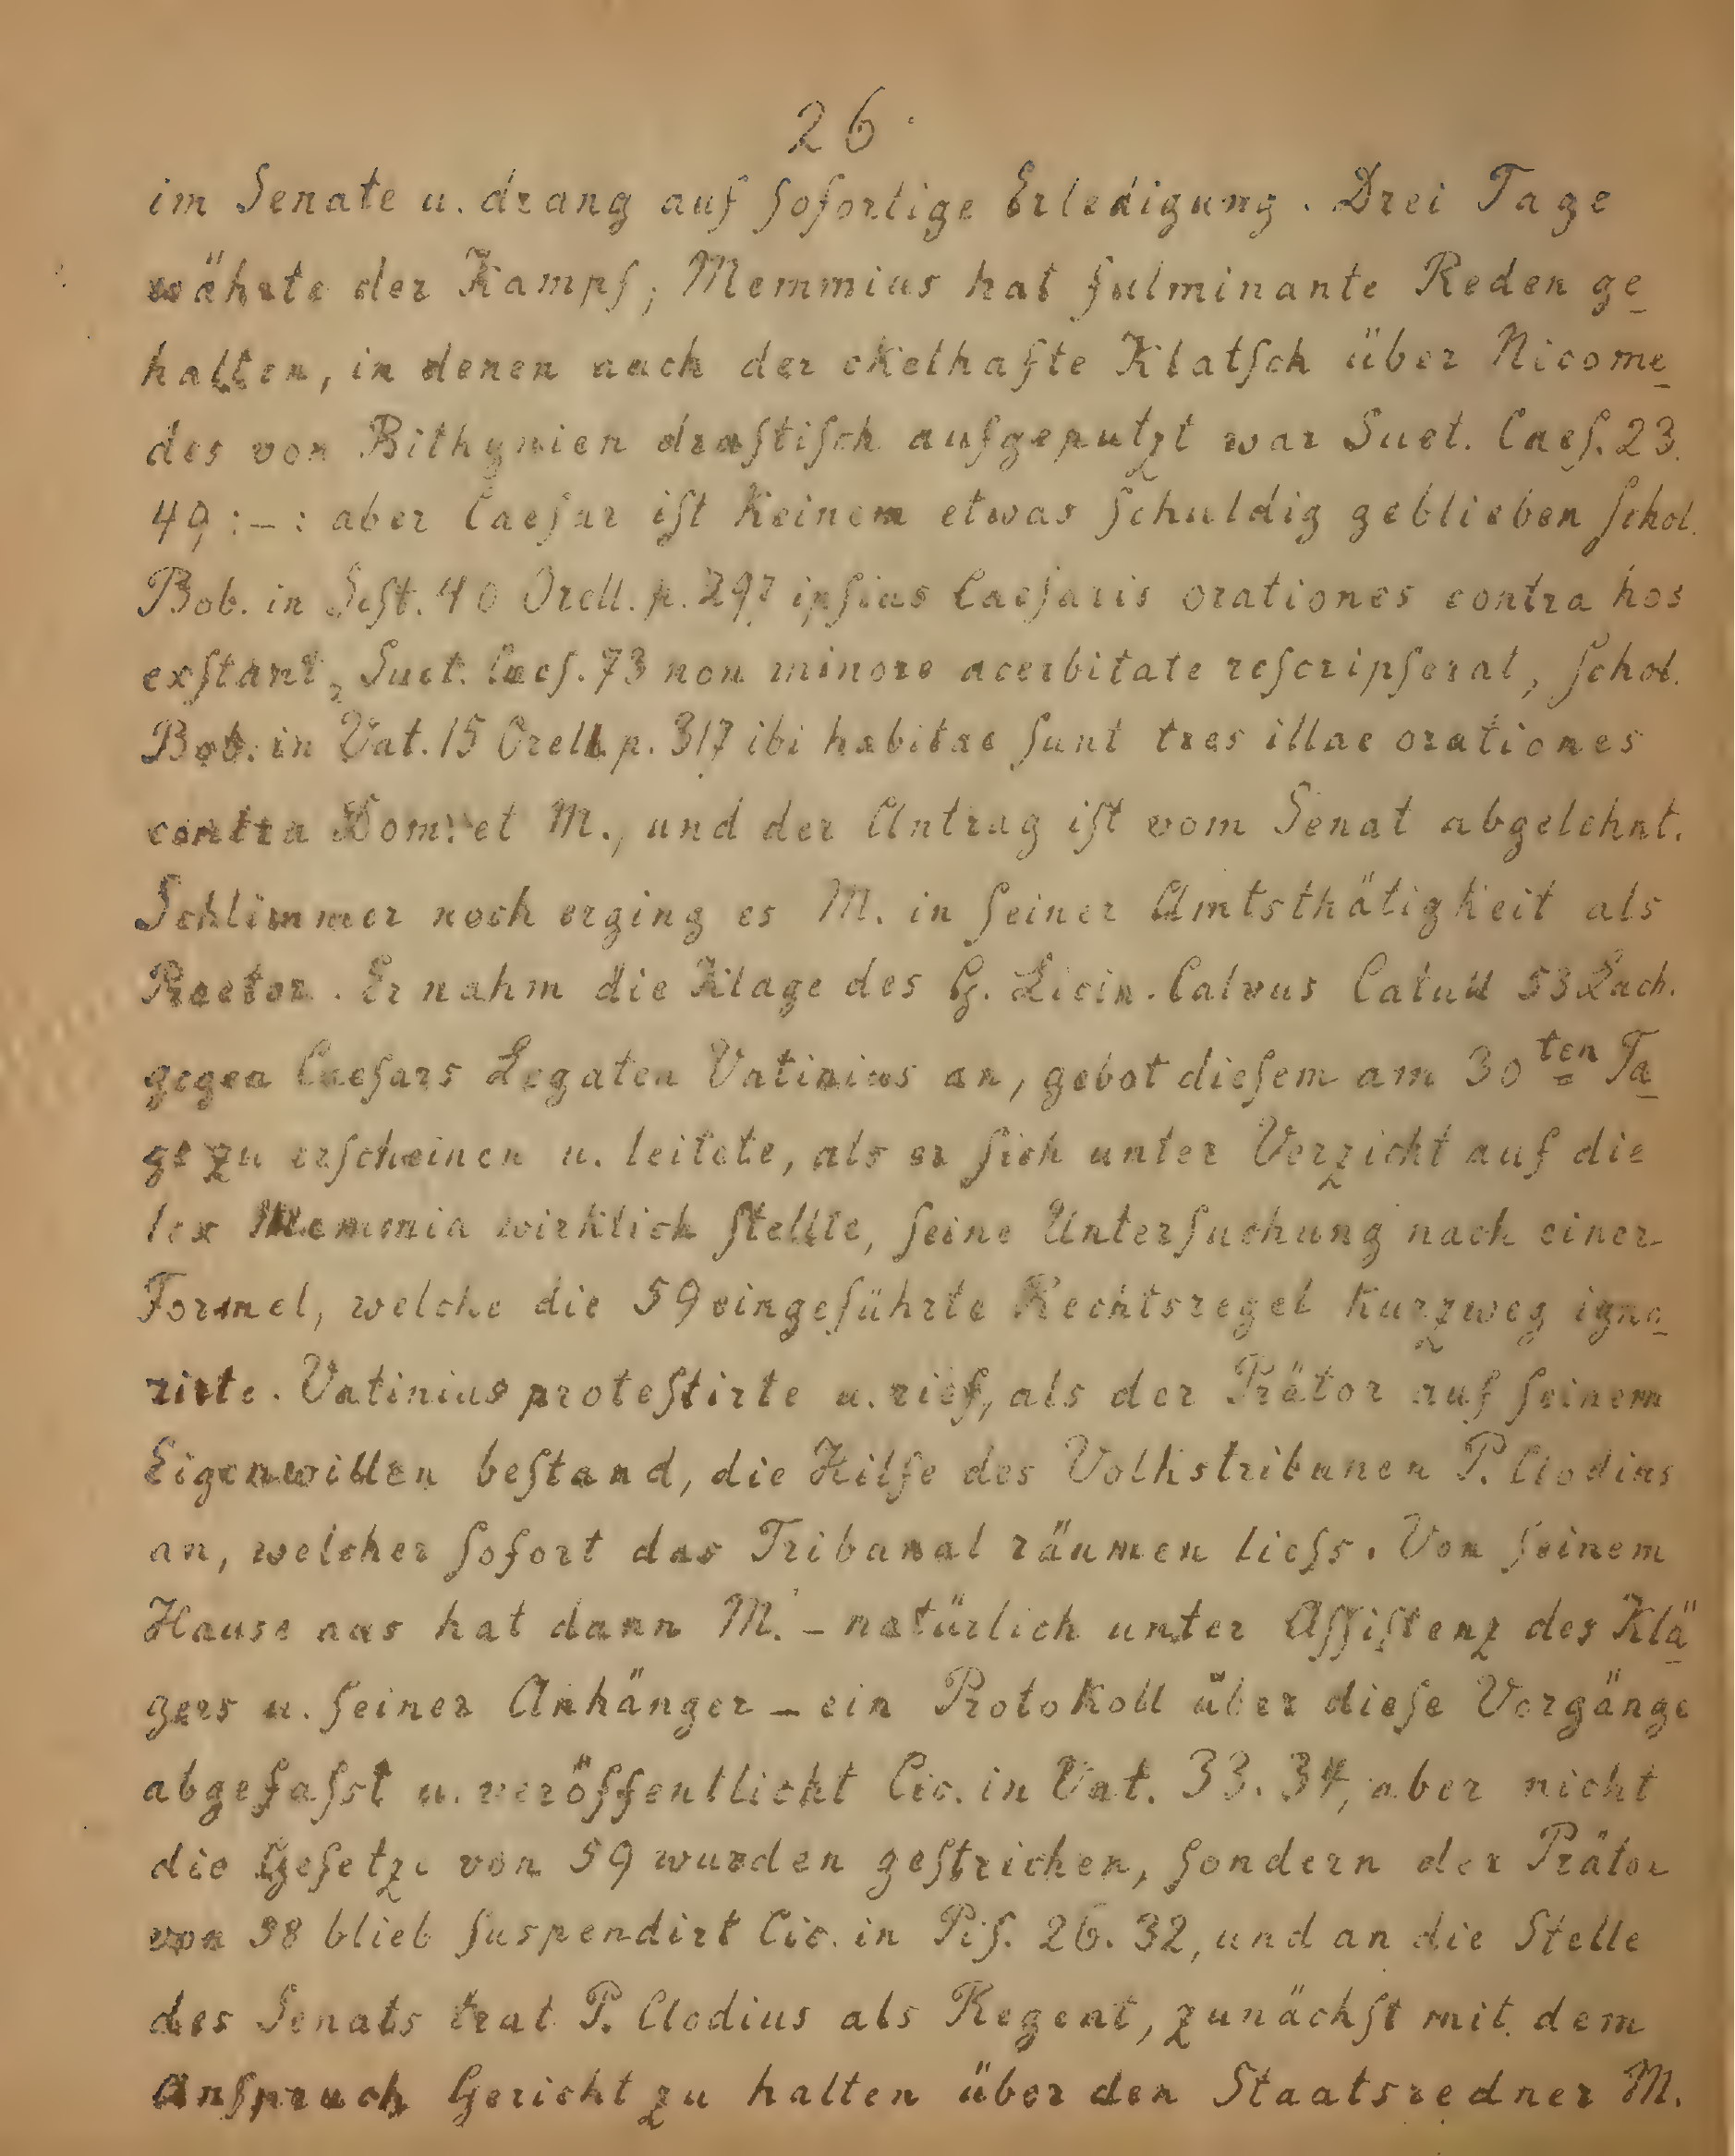 26.
im Senate u. drang auf ſofortige Erledigung. Drei Tage
währte der Kampf; Memmius hat fulminante Reden ge-
halten, in denen auch der ekelhafte Klatſch über Nicome-
des von Bithynien draſtiſch aufgeputzt war Suet. Caeſ. 23.
49 :–: aber Caeſar iſt keinem etwas ſchuldig geblieben Schol.
Bob. in Seſt. 40 Orell. p. 297 ipſius Caeſaris orationes contra hos
exſtant, Suet. Caeſ. 73 non minore acerbitate reſcripſerat, Schol.
Bob. in Vat. 15 Orell. p. 317 ibi habitae ſunt tres illae orationes
contra Dom. et M., und der Antrag iſt vom Senat abgelehnt.
Schlimmer noch erging es M. in ſeiner Amtsthätigkeit als
Praetor. Er nahm die Klage des G. Licin. Calvus Catull 53 Lach.
gegen Caeſars Legaten Vatinius an, gebot dieſem am 30ten Ta-
ge zu erſcheinen u. leitete, als er ſich unter Verzicht auf die
lex Memmia wirklich ſtellte, ſeine Unterſuchung nach einer
Formel, welche die 59 eingeführte Rechtsregel kurzweg igno-
rirte. Vatinius proteſtirte u. rief, als der Prätor auf ſeinem
Eigenwillen beſtand, die Hilfe des Volkstribunen P. Clodius
an, welcher ſofort das Tribunal räumen lieſs. Von ſeinem
Hause aus hat dann M. – natürlich unter Aſſiſtenz des Klä-
gers u. ſeiner Anhänger – ein Protokoll über dieſe Vorgänge
abgefaſst u. veröffentlicht Cic. in Vat. 33. 34, aber nicht
die Geſetze von 59 wurden geſtrichen, ſondern der Prätor
von 58 blieb ſuspendirt Cic. in Piſ. 26. 32, und an die Stelle
des Senats trat P. Clodius als Regent, zunächſt mit dem
Anſpruch Gericht zu halten über den Staatsredner M.